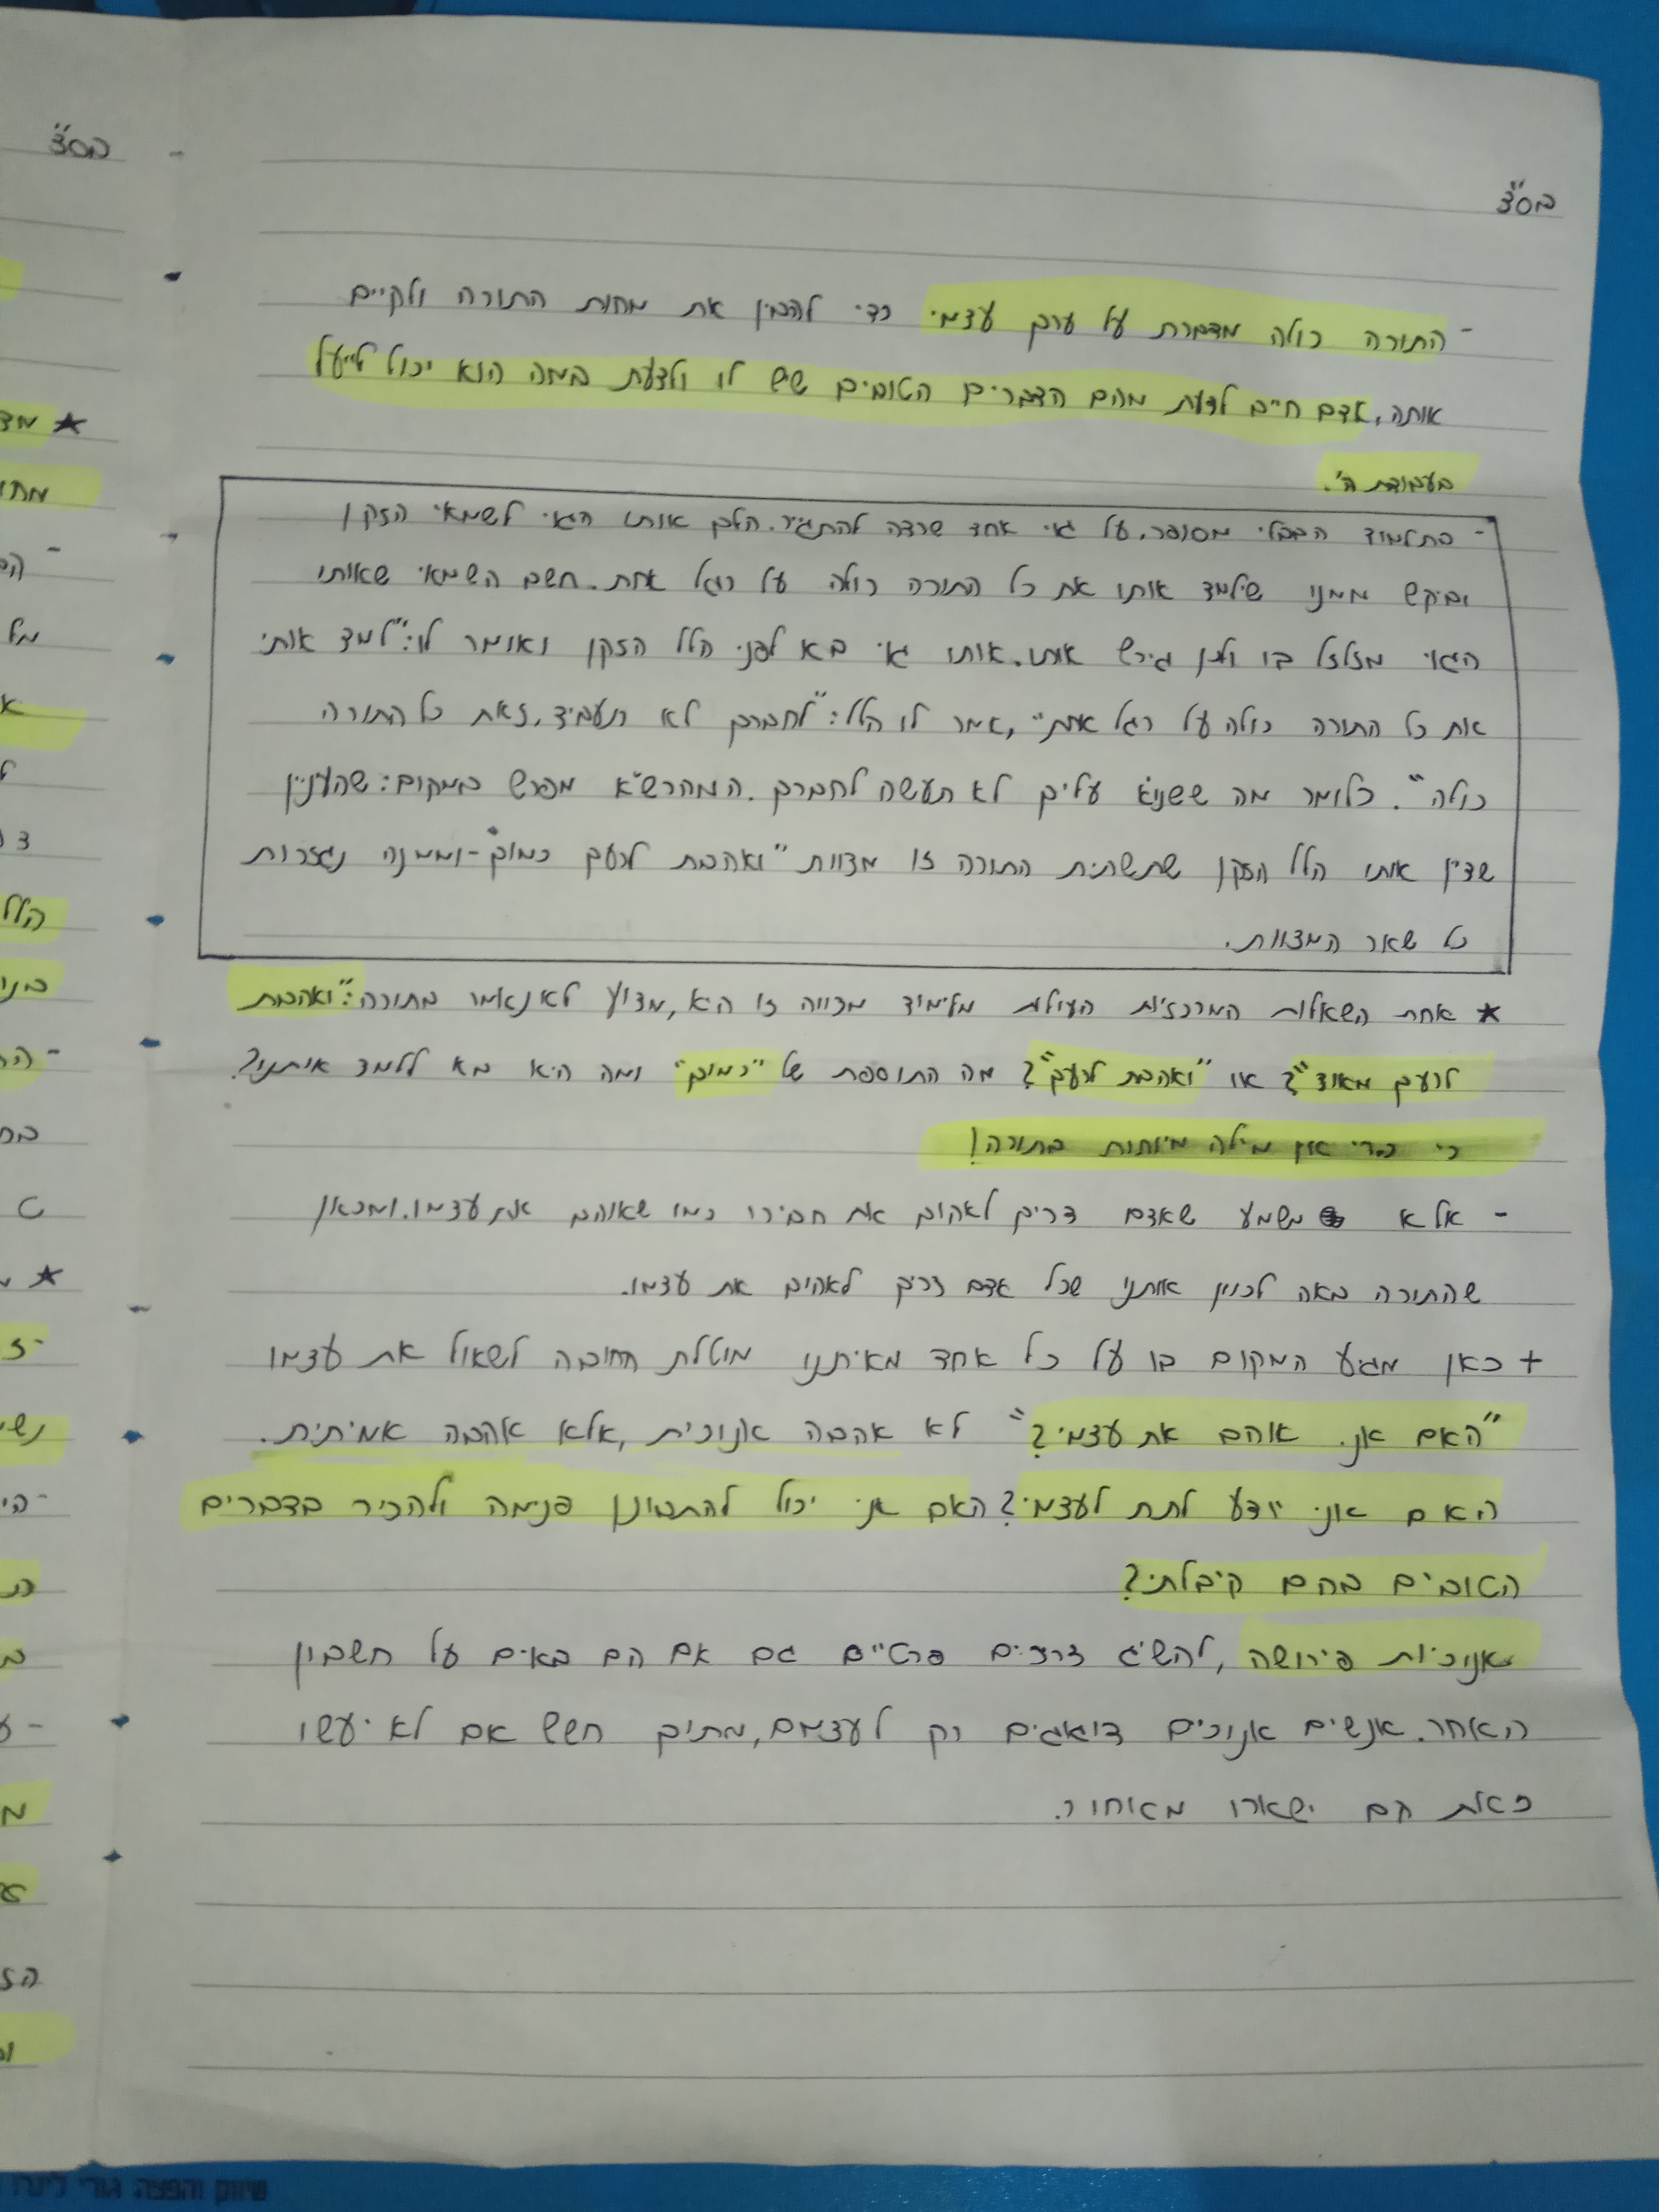 בס"ד
- התורה כולה מדברת על ערך עצמי כדי להבין את מהות התורה ולקיים
אותה, אדם חייב לדעת מהם הדברים הטובים שיש לו ולדעת במה הוא יכול לייעל
בעבודת ה'.
- בתלמוד הבבלי מסופר, על גוי אחד שרצה להתגייר. הלך אותו הגוי לשמאי הזקן
וביקש ממנו שילמד אותו את כל התורה כולה על רגל אחת. חשב השמאי שאותו
הגוי מזלזל בו ולכן גירש אותו. אותו גוי בא לפני הלל הזקן ואומר לו: "למד אותי
את כל התורה כולה על רגל אחת", אמר לו הלל: "לחברך לא תעביד, זאת כל התורה
כולה". כלומר מה ששנוא עליך לא תעשה לחברך. המהרש"א מפרש במקום: שהעניין
שציין אותו הלל הזקן שתשתית התורה זו מצוות "ואהבת לרעך כמוך" - וממנה נגזרות
כל שאר המצוות.
★ אחת השאלות המרכזיות העולות מלימוד מצווה זו היא, מדוע לא נאמר בתורה: "ואהבת
לרעך מאוד"? או "ואהבת לרעך"? מה התוספת של "כמוך" ומה היא בא ללמד איתנו?
כי הרי אין מילה מיותרת בתורה!
- אלא משמע שאדם צריך לאהוב את חבירו כמו שאוהב את עצמו. ומכאן
שהתורה באה לכוון אותנו שכל אדם צריך לאהוב את עצמו.
+ כאן מגיע המקום בו על כל אחד מאיתנו מוטלת החובה לשאול את עצמו
"האם אני אוהב את עצמי?" לא אהבה אנוכית, אלא אהבה אמיתית.
האם אני יודע לתת לעצמי? האם אני יכול להתבונן פנימה ולהכיר בדברים
הטובים בהם קיבלתי?
אנוכיות פירושה, להשיג צרכים פרטיים גם אם הם באים על חשבון
האחר. אנשים אנוכים דואגים רק לעצמם, מתוך חשש אם לא יעשו
כזאת הם ישארו מאחור.
בס"ד